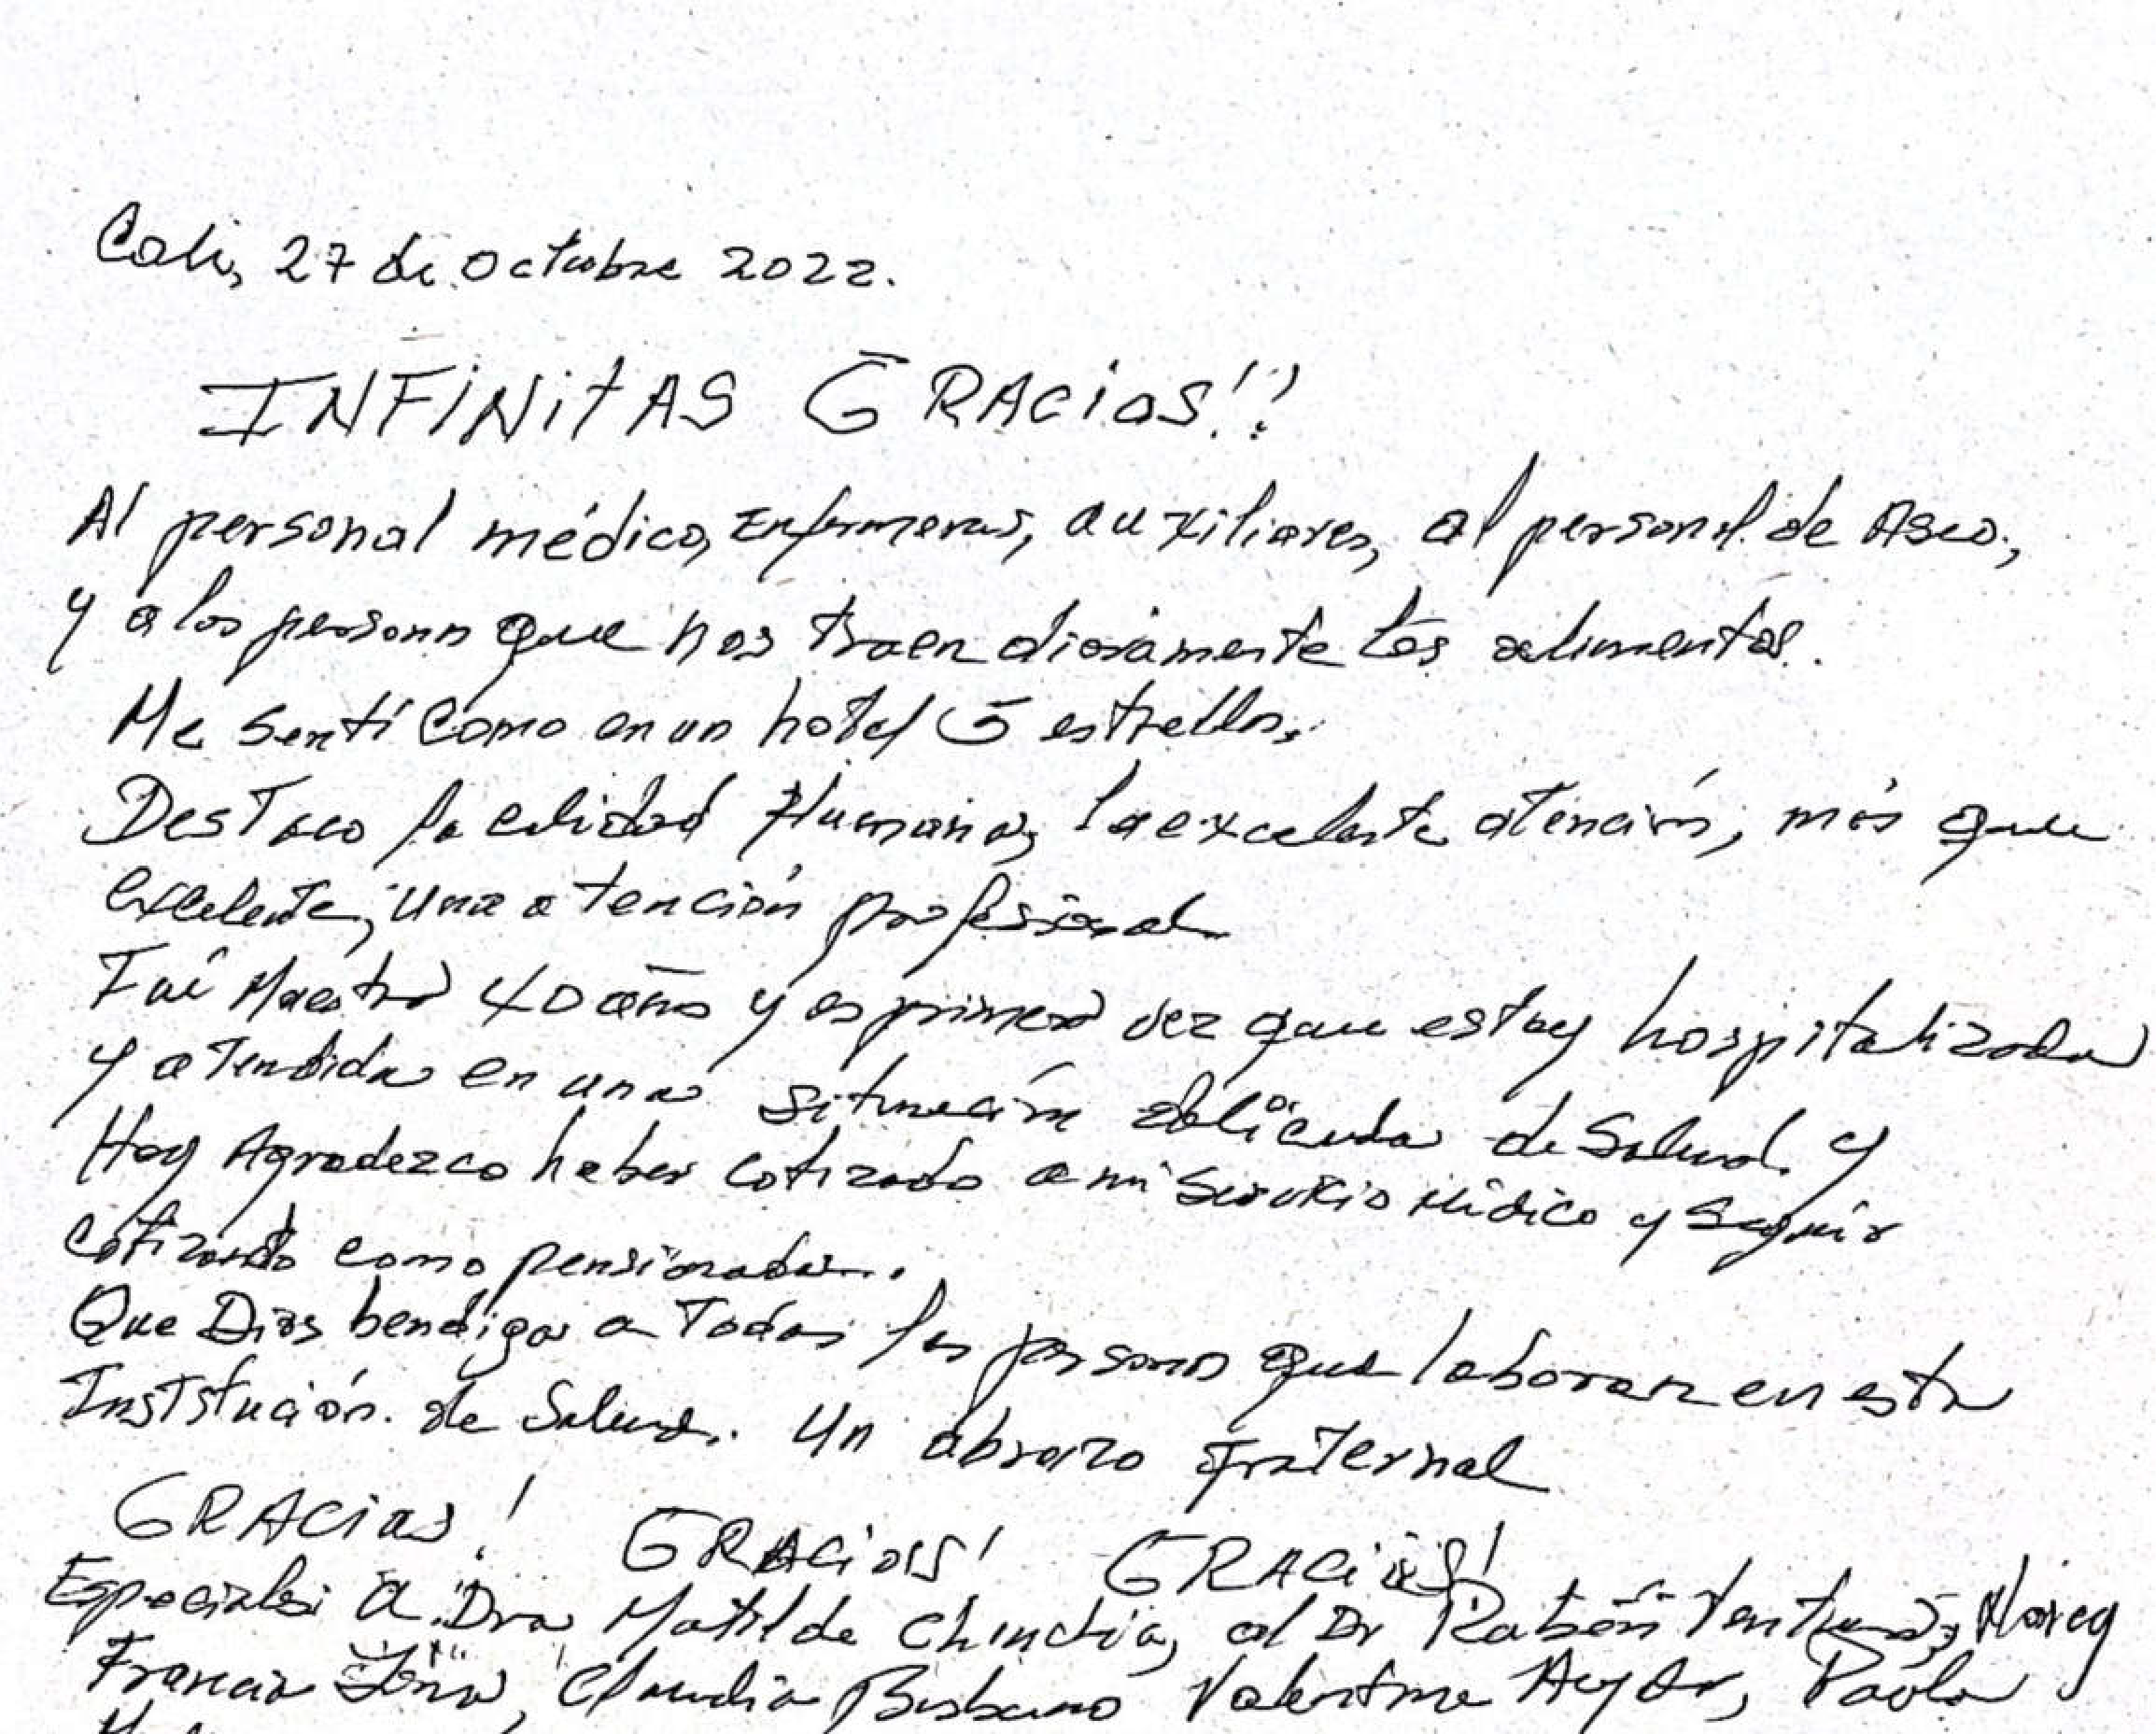 Cali, 27 de Octubre 2022.
INFINITAS GRACIAS!!
Al personal médico, Enfermeras, auxiliares, al personal de Aseo.,
y a las personas que nos traen diariamente los alimentos.
Me sentí como en un hotel 5 estrellas.
Destaco la calidad Humana, la excelente atención, más que
excelente, una atención profesional
Fuí Maestra 40 años y es primera vez que estoy hospitalizada
y atendida en una situación delicada de Salud. y
Hoy Agradezco haber cotizado a mi Servicio Médico y seguir
cotizando como pensionada.
Que Dios bendiga a Todas las personas que laboran en esta
Institución de Salud. Un abrazo fraternal
GRACIAS! GRACIAS! GRACIAS!
a Dra Matilde Chinchia, al Dr Rubén
Francia, Claudia Valentina, Paola